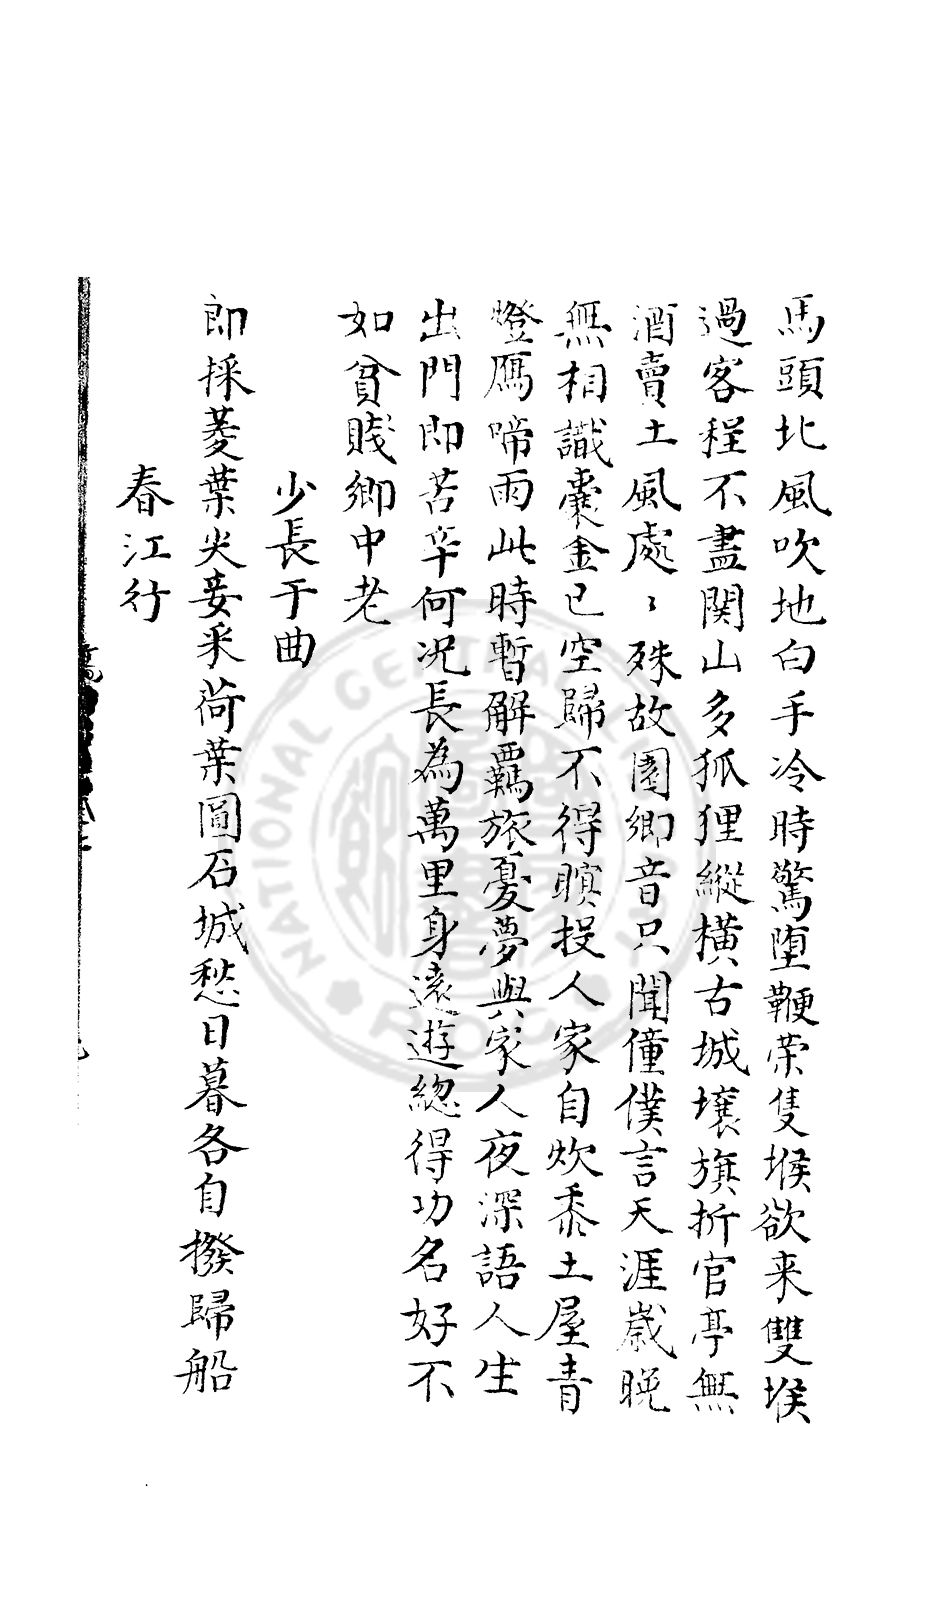 馬頭北風吹地白手冷時驚堕鞭荣隻堠欲来雙堠
過客程不盡関山多狐狸縱横古城壊旗折官亭無
酒賣土風處〻殊故園鄉音只聞僮僕言天涯嵗晚
無相識囊金已空歸不得瞑投人家自炊黍土屋青
燈鴈啼雨此時暫解羈旅憂夢與家人夜深語人生
出門即苦辛何况長為萬里身遠遊總得功名好不
如貧賤鄉中老
少長于曲
郎採菱葉尖妾采荷葉圓石城愁日暮各自撥歸船
春江行
NATIONAL CENTRAL